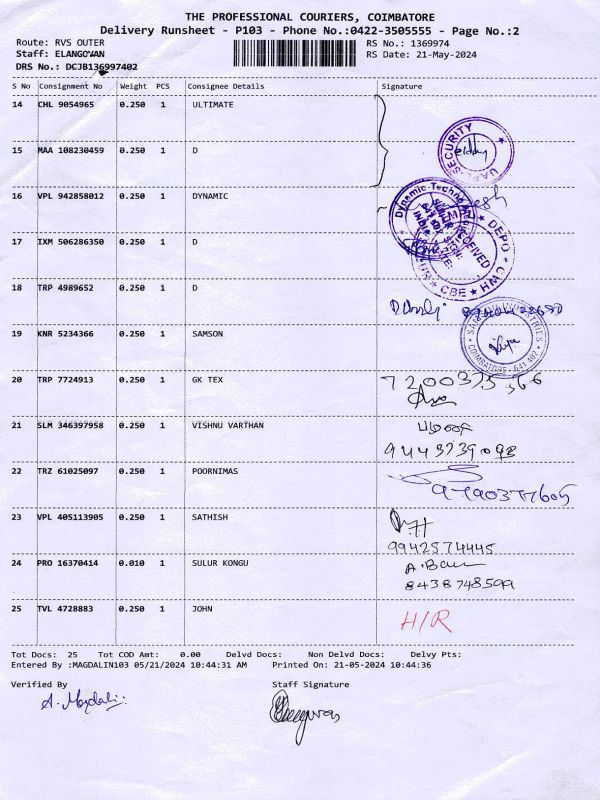 THE PROFESSIONAL COURIERS, COIMBATORE
Delivery Runsheet - P103 - Phone No.:0422-3505555 - Page No.:2
Route: RVS OUTER
RS No.: 1369974
Staff: ELANGOVAN
RS Date: 21-May-2024
DRS No.: DCJB136997402
S No Consignment No Weight PCS Consignee Details Signature
14 CHL 9054965 0.250 1 ULTIMATE
15 MAA 108230459 0.250 1 D
SECURITY
16 VPL 942858012 0.250 1 DYNAMIC
17 IXM 506286350 0.250 1 D
RECEIVED
DEPO
CBE
18 TRP 4989652 0.250 1 D
19 KNR 5234366 0.250 1 SAMSON
COIMBATORE - 641 402
20 TRP 7724913 0.250 1 GK TEX
21 SLM 346397958 0.250 1 VISHNU VARTHAN
22 TRZ 61025097 0.250 1 POORNIMAS
23 VPL 405113905 0.250 1 SATHISH
9942574445
24 PRO 16370414 0.010 1 SULUR KONGU
8438748599
25 TVL 4728883 0.250 1 JOHN H/R
Tot Docs: 25 Tot COD Amt: 0.00 Delvd Docs: Non Delvd Docs: Delvy Pts:
Entered By :MAGDALIN103 05/21/2024 10:44:31 AM Printed On: 21-05-2024 10:44:36
Verified By Staff Signature
A. Magdali